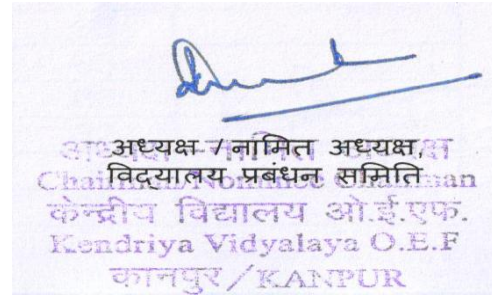 अध्यक्ष / नामित अध्यक्ष,
विद्यालय प्रबंधन समिति
Chairman/Nominee Chairman
केन्द्रीय विद्यालय ओ.ई.एफ.
Kendriya Vidyalaya O.E.F
कानपुर / KANPUR